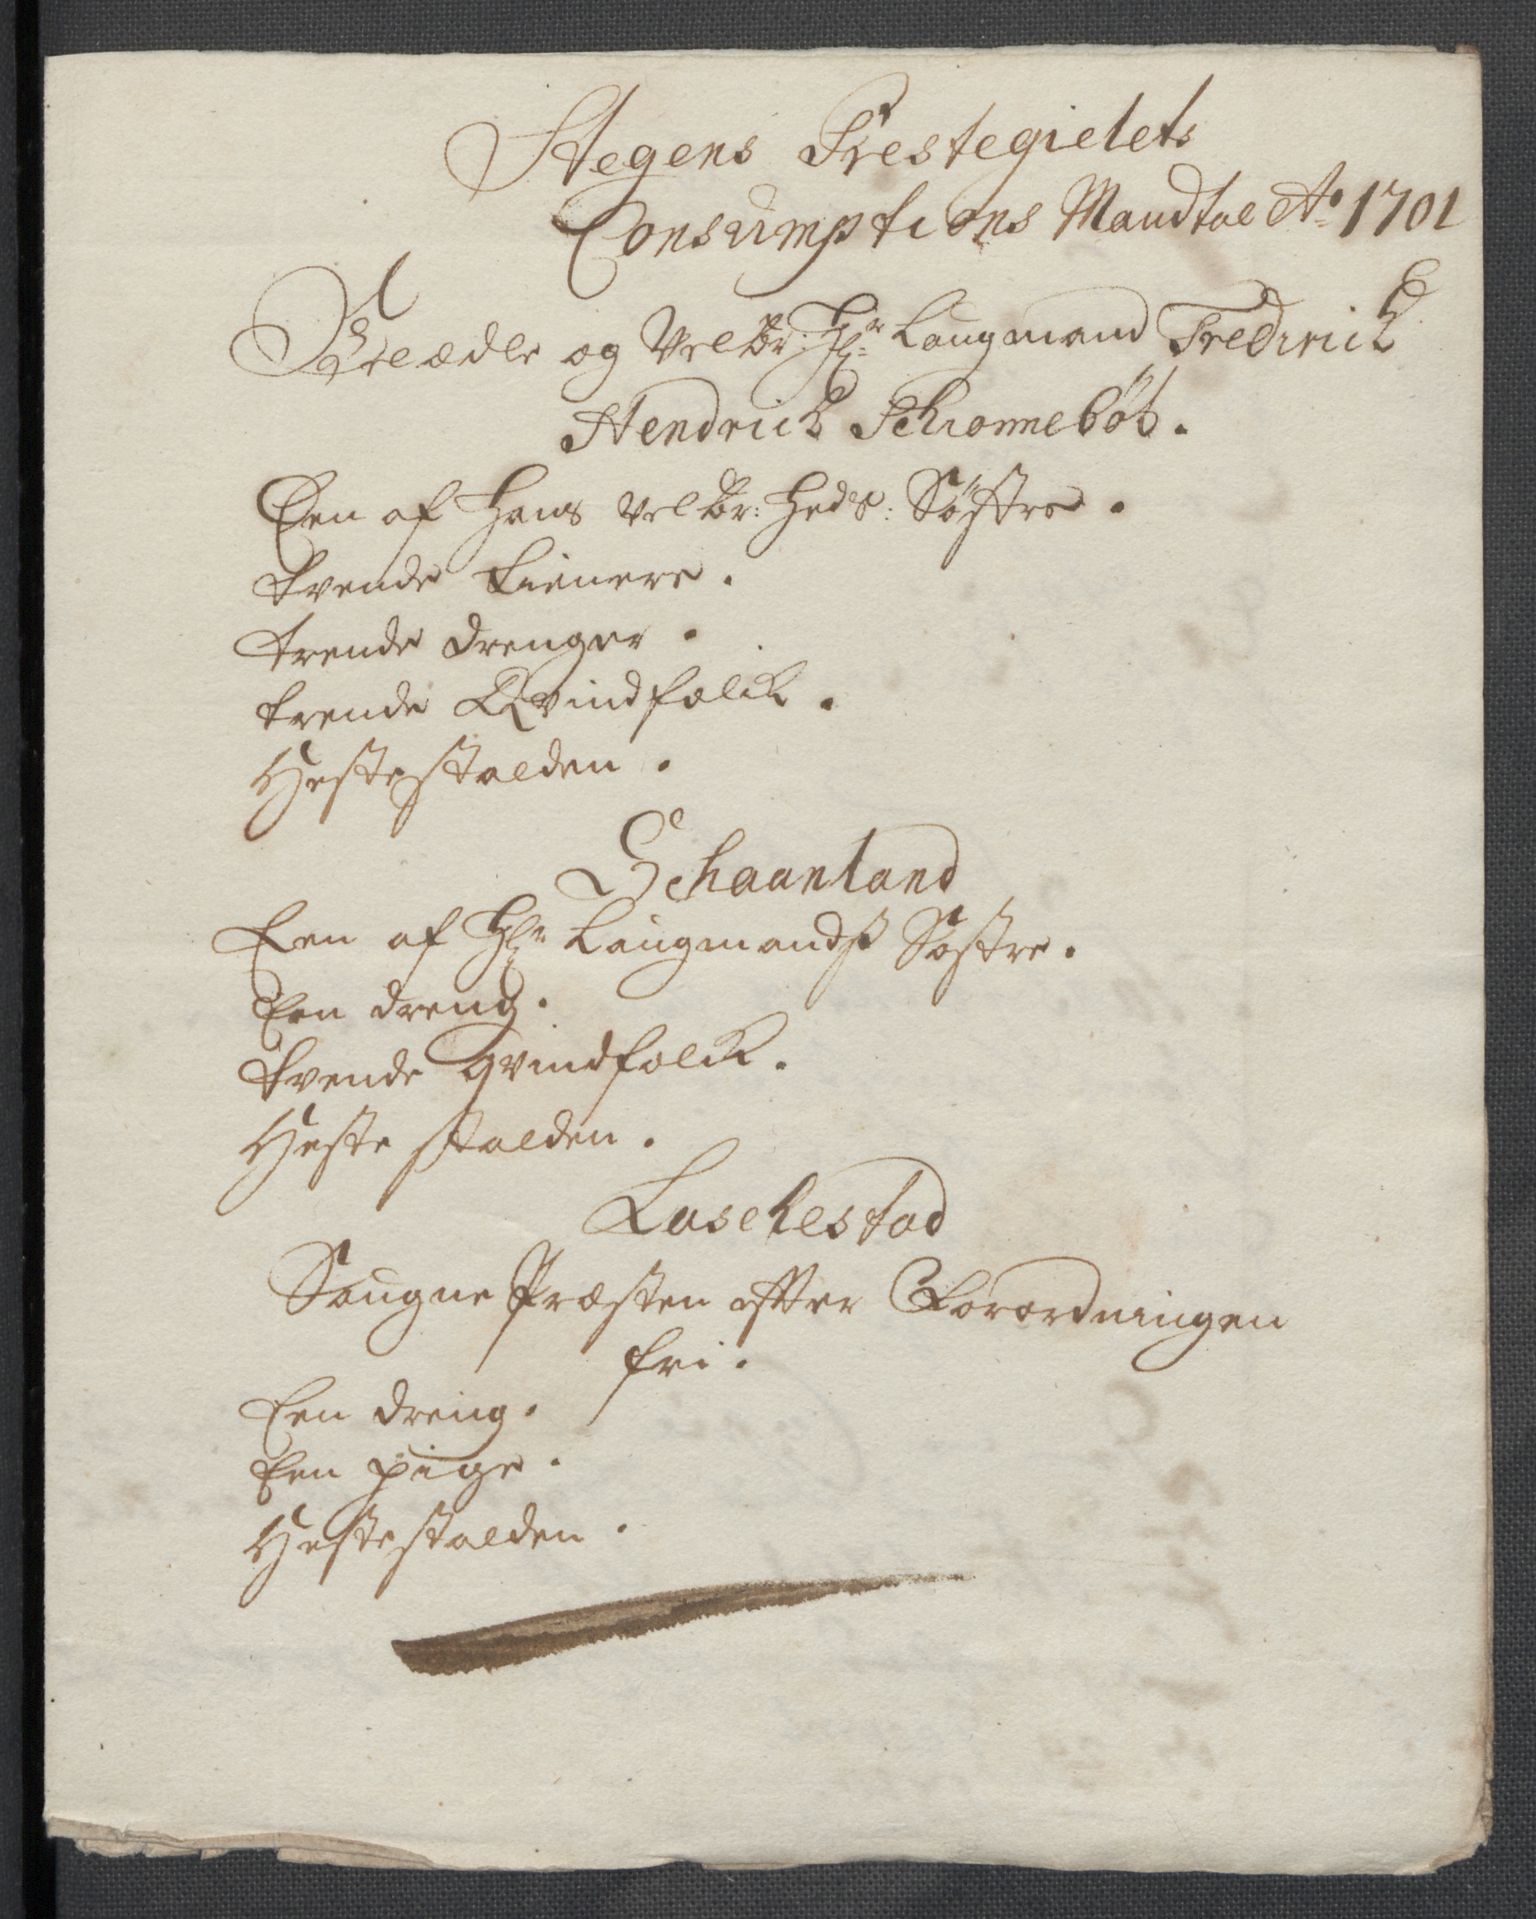 Stegens Prestegields
Consumptions Mandtal Ao 1701
Velædle og Velbr: Hr: Laugmand Fredrick
Hendrick Schønnebøl.
Een af Hans Velbr: Heds: Søstre.
tvende tienere.
trende drenger.
trende Qvindfolck.
Hestestalden.
Schaanland
Een af Hr Laugmandß Søstre.
Een dreng.
tvende qvindfolck.
Heste stalden.
Laschestad
Saugne Præsten efter Forordningen
fri.
Een dreng.
Een pige.
Hestestalden.